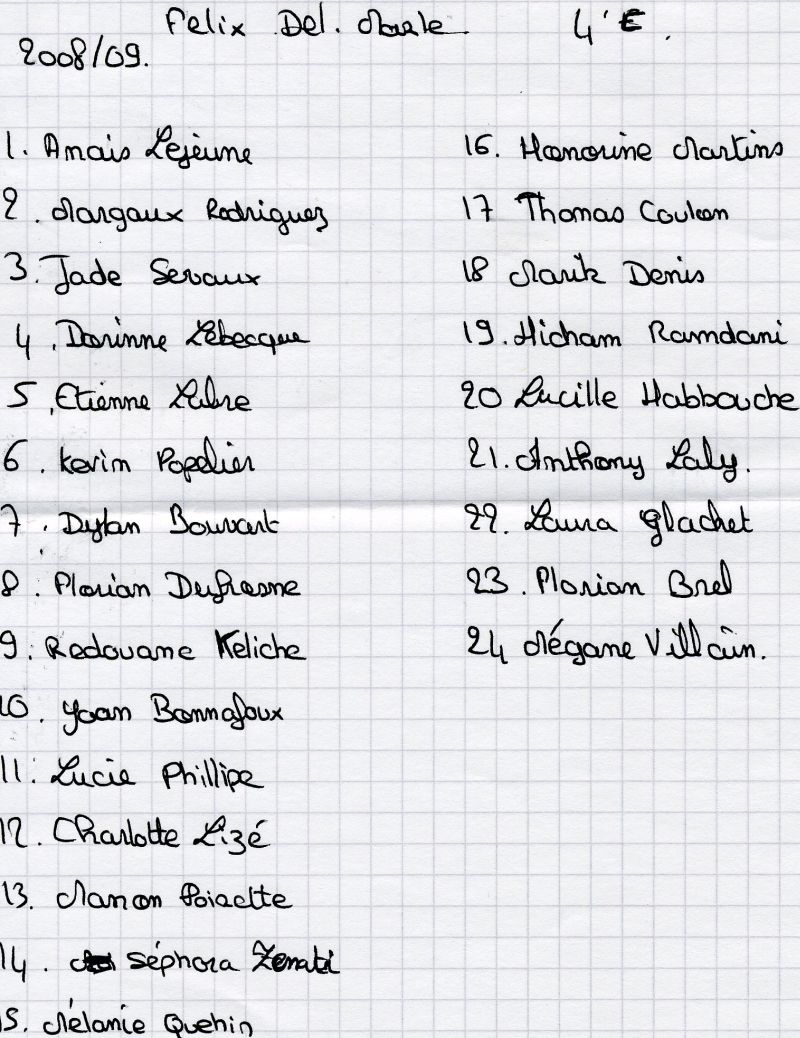 Felix Del. Marle 4'E.
2008/09.
1. Anais Lejeune
2. Margaux Rodriguez
3. Jade Servaux
4. Dorinne Lebecque
5. Etienne Labre
6. Kevin Popelier
7. Dylan Bouvart
8. Florian Dufresne
9. Redouane Keliche
10. Yoan Bonnafoux
11. Lucie Phillipe
12. Charlotte Lizé
13. Manon
14. Séphora Zenati
15. Mélanie Quehin
16. Honorine Martins
17 Thomas Coulon
18 Marik Denis
19. Hicham Ramdani
20 Lucille Habbouche
21. Anthony Laly.
22. Laura Glachet
23. Florian Brel
24 Mégane Villain.